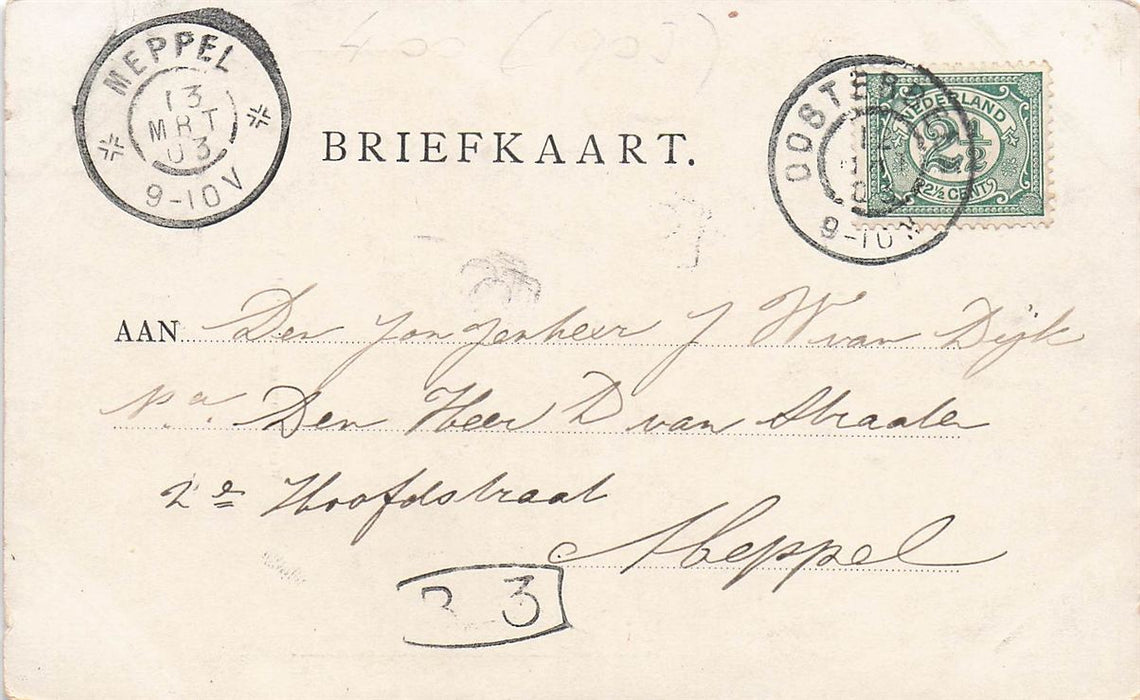 MEPPEL
13
MRT
03
9-10V
BRIEFKAART.
OOSTERB
03
9-10V
NEDERLAND
2½
2½ CENT
AAN Den Jongenheer J W van Dijk
p.a. Den Heer D van Straaten
2e Hoofdstraat
Meppel
B 3